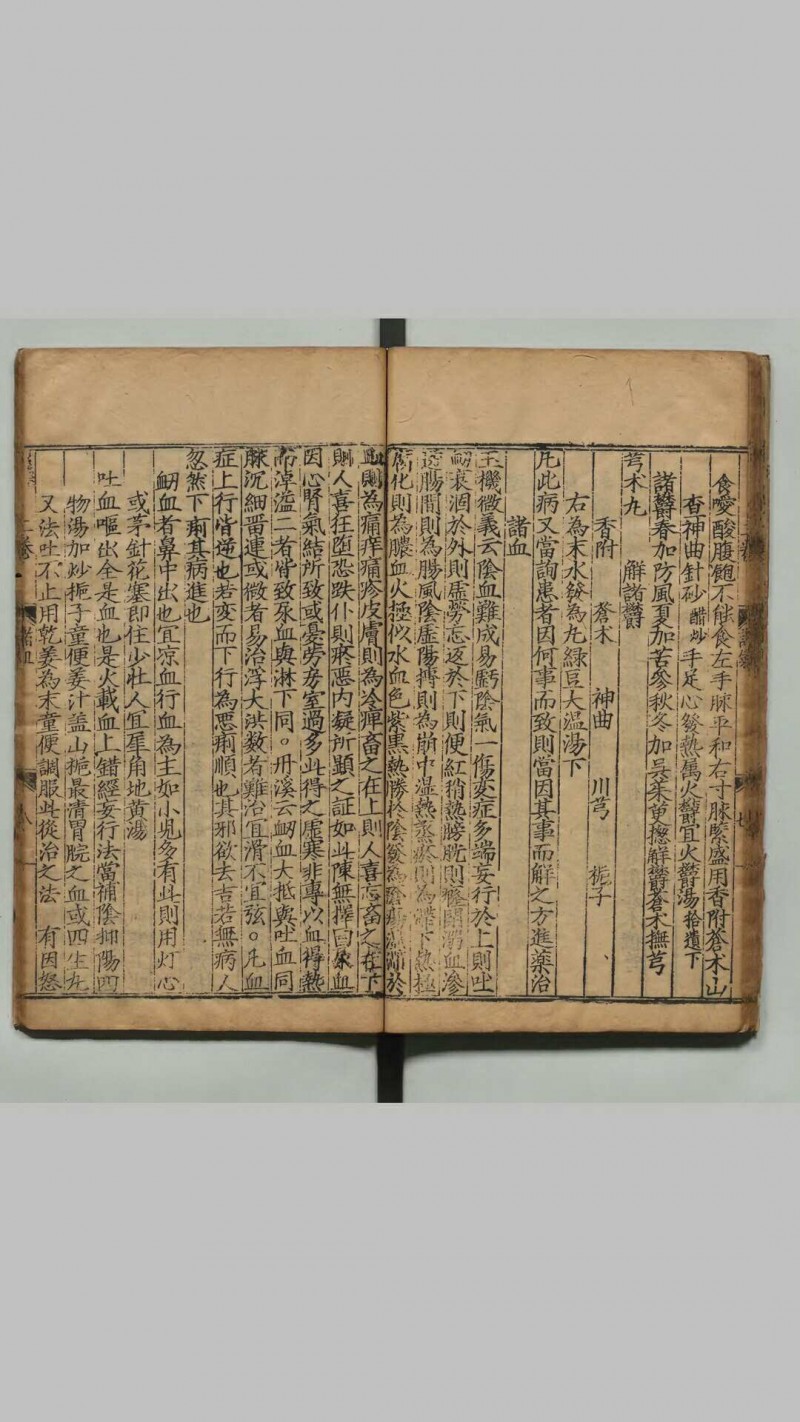 食噯酸腹飽不能食左手脉平和右寸脉緊盛用香附蒼术山
查神曲針砂醋炒手足心發熱属火欝宜火欝湯拾遺下
諸欝春加防風夏加苦參秋冬加吳茱萸揔解欝蒼术撫芎
芎术丸　觧諸欝
香附　蒼术　神曲　川芎　梔子
右為末水發為丸綠豆大温湯下
凡此病又當詢患者因何事而致則當因其事而解之方進藥治
諸血
玉機微義云陰血難成易虧陰氣一傷变症多端妄行於上則吐
衂衰涸於外則虚勞忘返於下則便紅稍熱膀胱則癃閉溺血滲
透腸間則為腸風陰虚陽搏則為崩中湿熱蒸瘀則為滯下熱極
腐化則為膿血火極似水血色紫黒熱勝於陰發為瘡瘍湿滯於
血則為痛痒癮疹皮膚則為冷痺畜之在上則人喜忘畜之在下
則人喜狂堕恐跌仆則瘀悪内凝所顕之証如此陳無擇曰尿血
因心腎氣結所致或憂勞房室過多此得之虚寒非專以血得熱
而淖溢二者皆致尿血與淋下同。丹溪云衂血大抵與吐血同
脉沉細晋連或微者易治浮大洪数者難治宜滑不宜弦。凡血
症上行皆逆也若变而下行為悪痢順也其邪欲去吉若無病人
忽然下痢其病進也
衂血者鼻中出也宜凉血行血為主如小児多有此則用灯心
或茅針花塞即住少壮人宜犀角地黄湯
吐血嘔出全是血也是火載血上錯經妄行法當補陰抑陽四
物湯加炒梔子童便姜汁盖山梔最清胃脘之血或四生丸
又法吐不止用乾姜為末童便調服此從治之法　有因怒
二卷　諸血　八